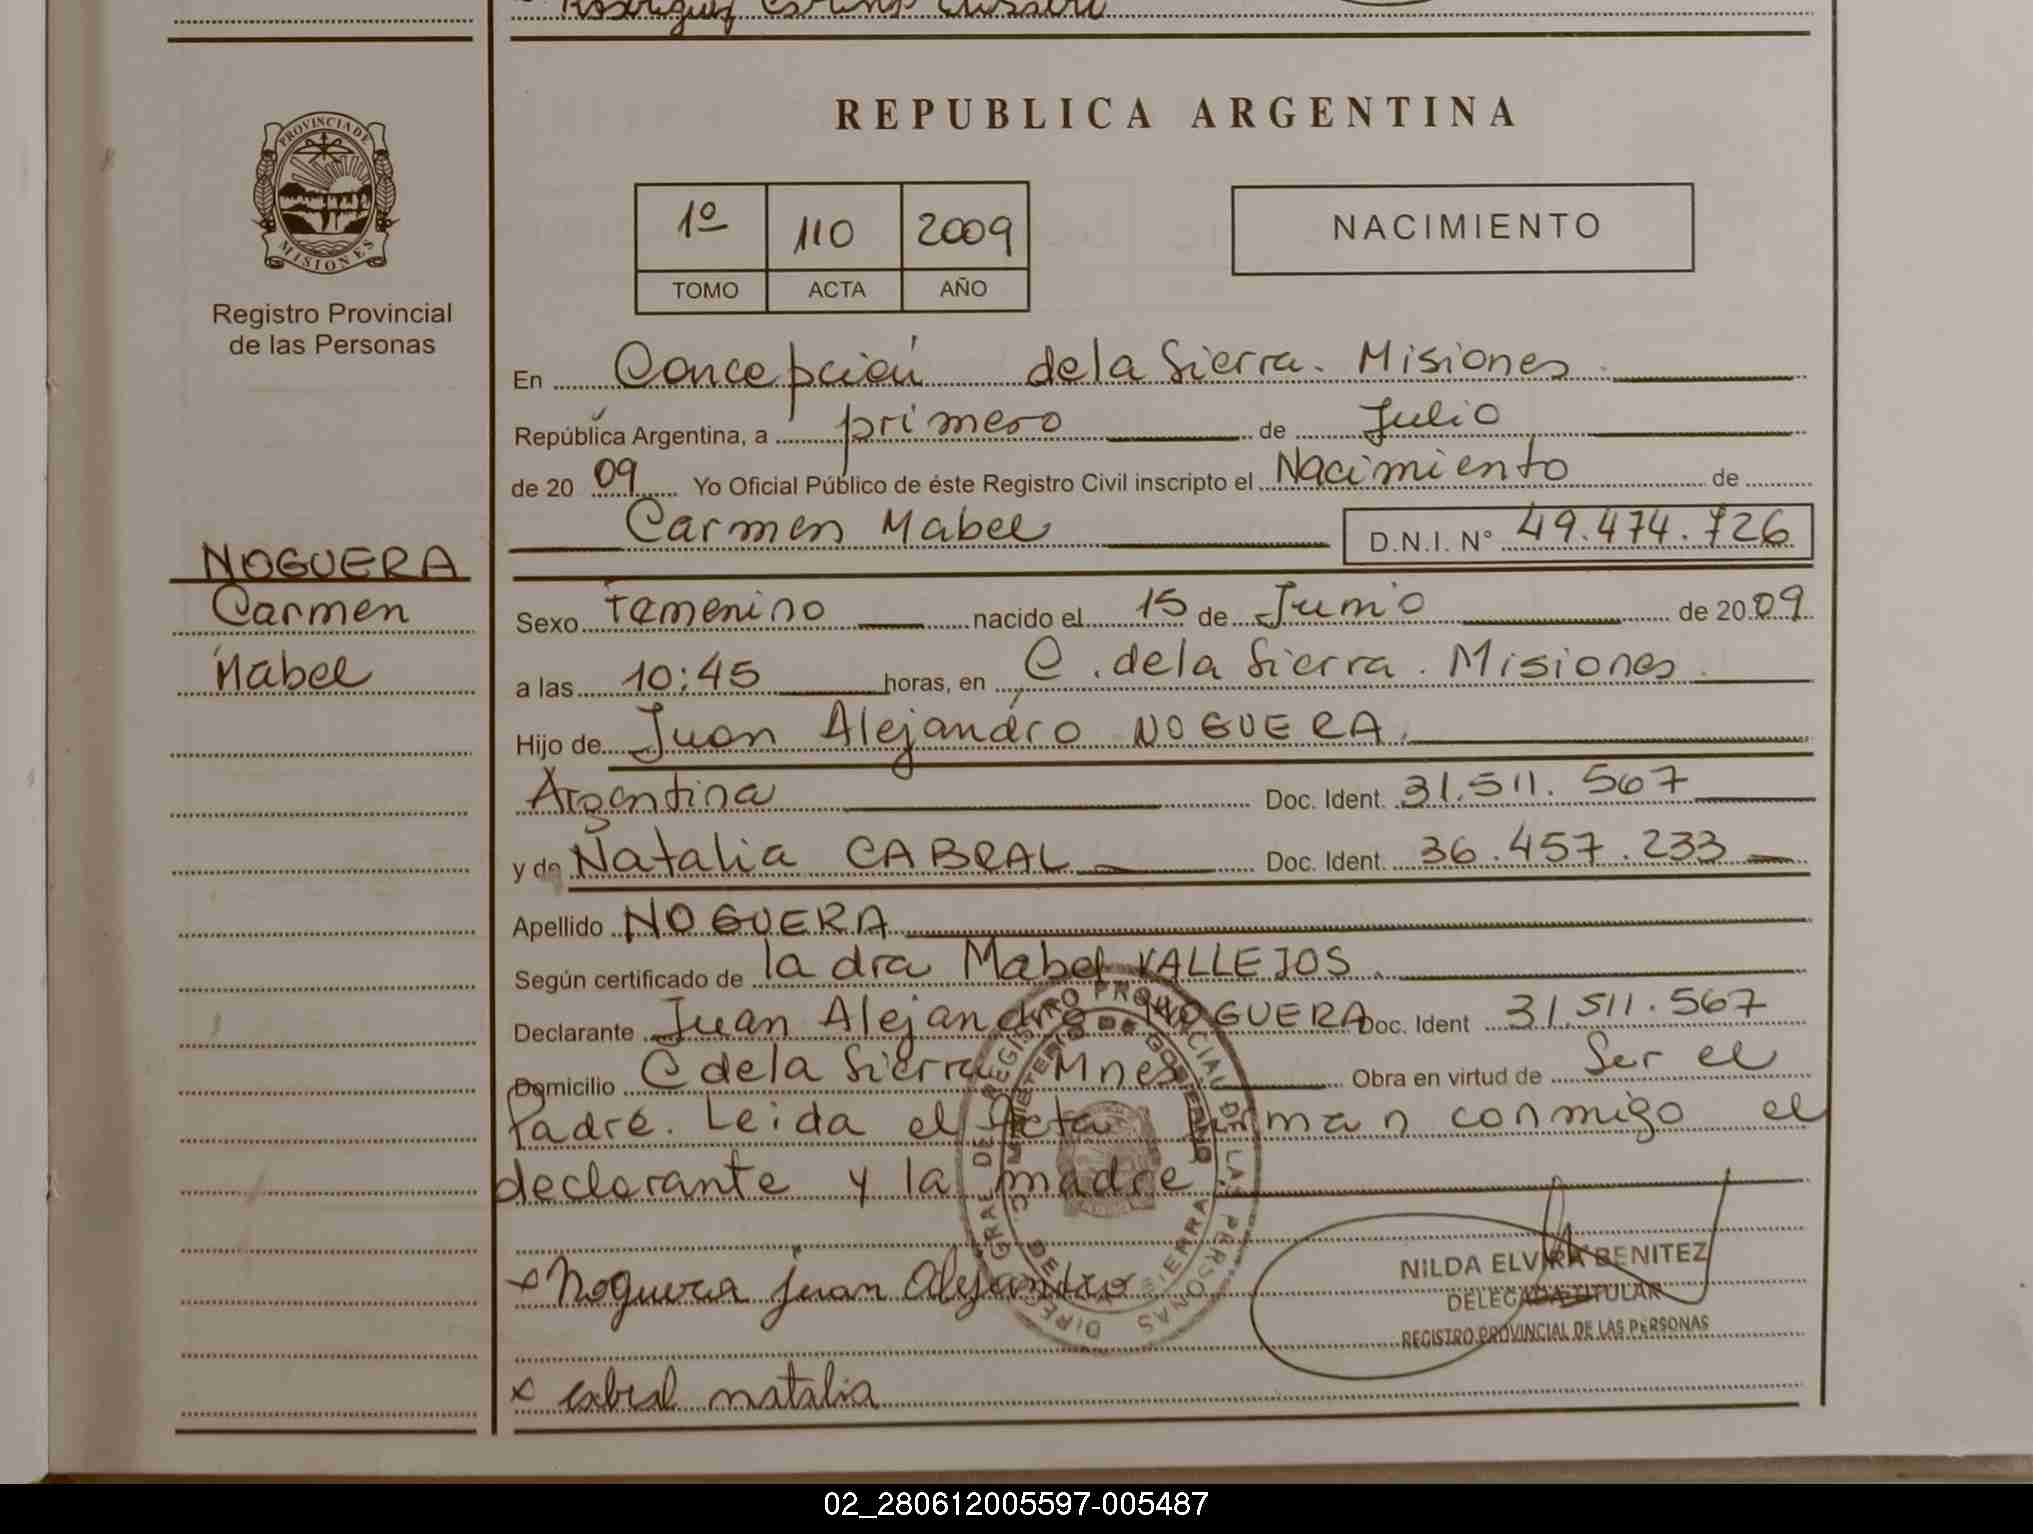 Rodriguez
PROVINCIA DE
MISIONES
Registro Provincial
de las Personas
REPUBLICA ARGENTINA
1º 110 2009
TOMO ACTA AÑO
NACIMIENTO
En Concepción de la Sierra. Misiones.
República Argentina, a primero de Julio
de 20 09 Yo Oficial Público de éste Registro Civil inscripto el Nacimiento de
Carmen Mabel D.N.I. Nº 49.474.726
NOGUERA
Carmen
Mabel
Sexo Femenino nacido el 15 de Junio de 20 09
a las 10:45 horas, en C. de la Sierra. Misiones
Hijo de Juan Alejandro NOGUERA.
Argentina Doc. Ident. 31.511.567
y de Natalia CABRAL Doc. Ident. 36.457.233
Apellido NOGUERA
Según certificado de la dra Mabel VALLEJOS.
Declarante Juan Alejandro NOGUERA Doc. Ident 31.511.567
Domicilio C de la Sierra Mnes. Obra en virtud de Ser el
Padre. Leida el Acta firman conmigo el
declarante y la madre.
x Noguera juan Alejandro
x cabral natalia
DIREC. GRAL DE REGISTRO PROVINCIAL DE LAS PERSONAS
MINISTERIO DE GOBIERNO
C. DE LA SIERRA
NILDA ELVIRA BENITEZ
DELEGADA TITULAR
REGISTRO PROVINCIAL DE LAS PERSONAS
02_280612005597-005487